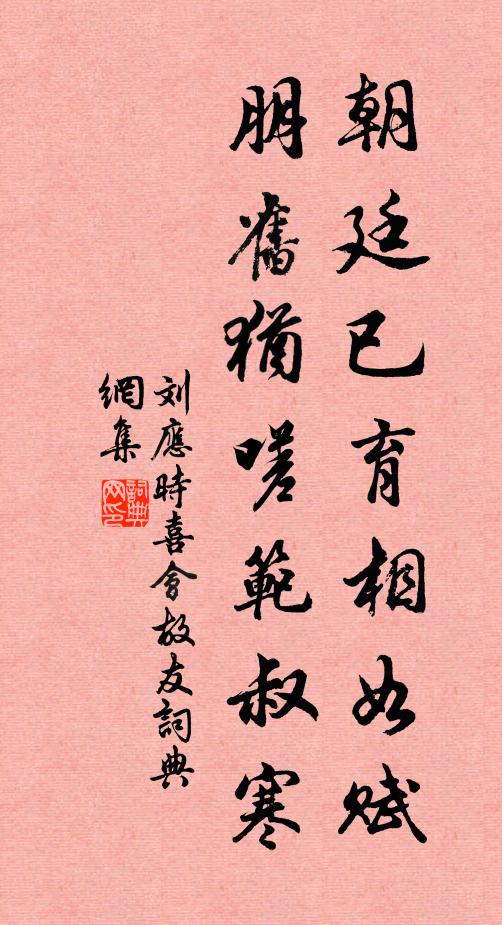 朝廷已育相如賦
朋舊猶嗟範叔寒
刘應時喜會故友詞典
網集
詞典網印